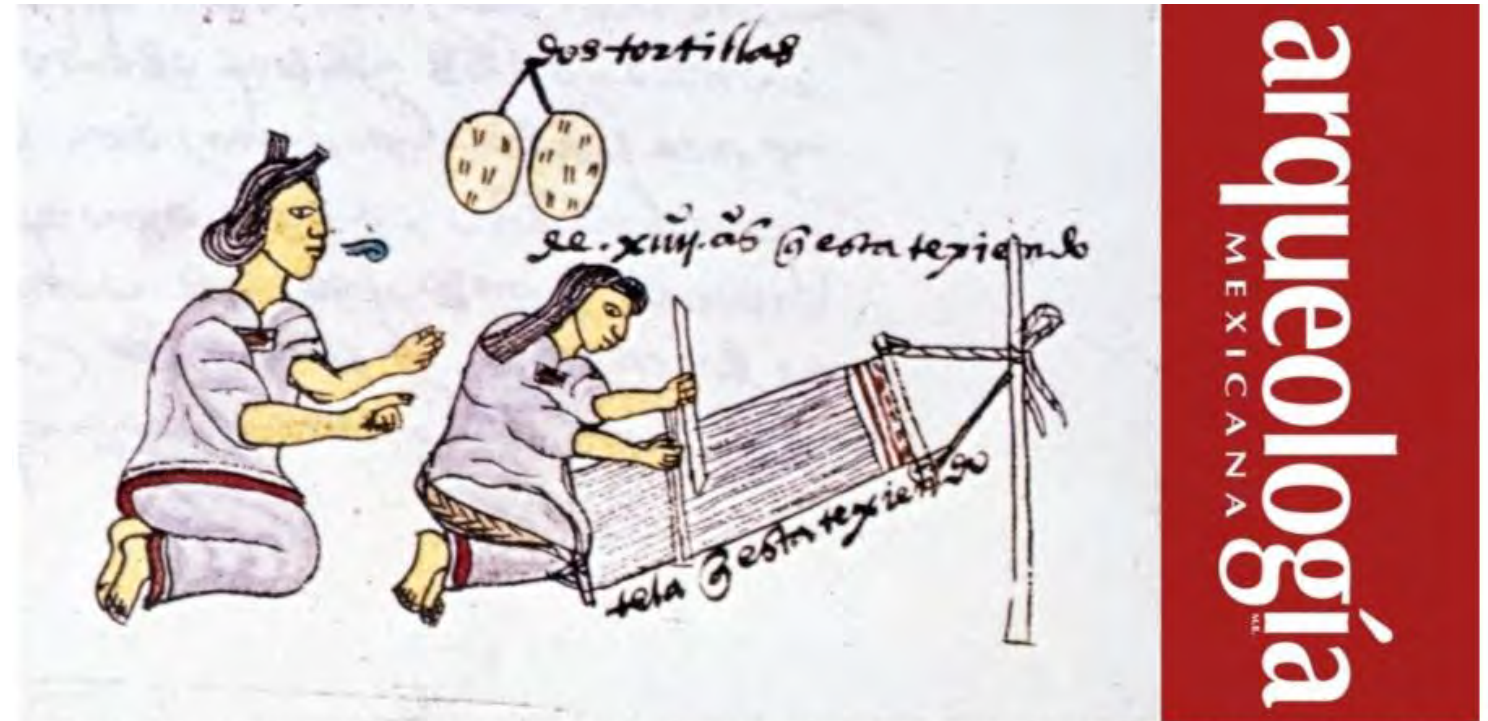 dos tortillas
de .xiiijº. aº̃s q̃ esta texiendo
tela q̃ esta texiendo
arqueología
MEXICANA
M.R.